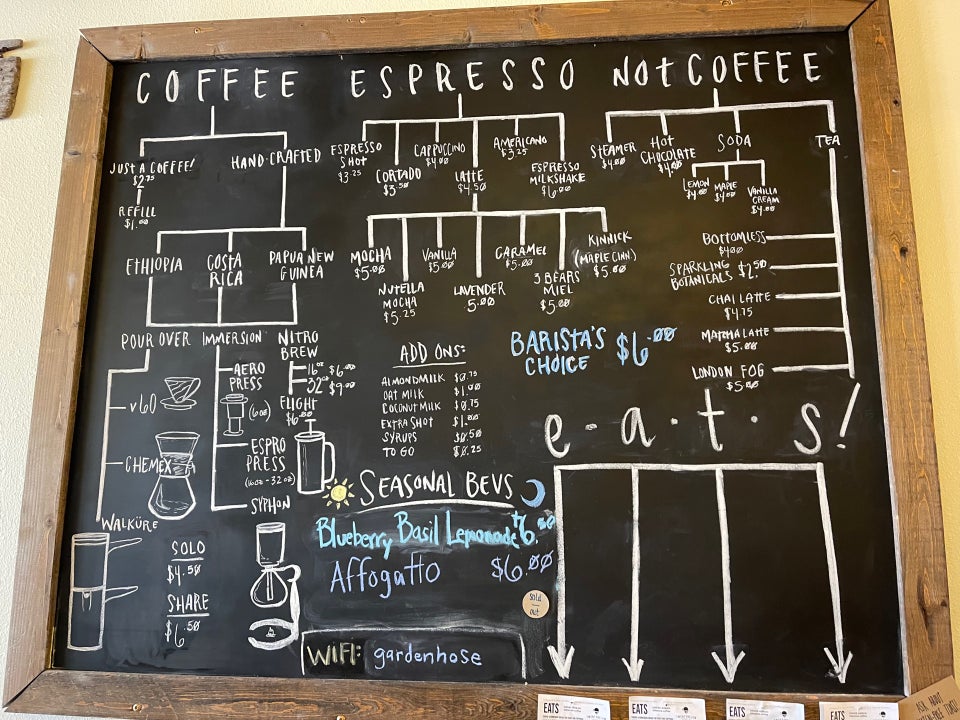 COFFEE
JUST A COFFEE!
$2.75
REFILL
$1.00
HAND-CRAFTED
ETHIOPIA
COSTA
RICA
PAPUA NEW
GUINEA
POUR OVER
V60
CHEMEX
WALKÜRE
IMMERSION
AERO
PRESS
(16oz)
ESPRO
PRESS
(16oz-32oz)
SYPHON
NITRO
BREW
16oz $6.00
32oz $9.00
FLIGHT
$6.00
SOLO
$4.50
SHARE
$6.50
ESPRESSO
ESPRESSO
SHOT
$3.25
CORTADO
$3.50
CAPPUCCINO
$4.00
LATTE
$4.50
AMERICANO
$3.25
ESPRESSO
MILKSHAKE
$6.00
MOCHA
$5.00
NUTELLA
MOCHA
$5.25
VANILLA
$5.00
LAVENDER
5.00
CARAMEL
$5.00
3 BEARS
MIEL
$5.00
KINNICK
(MAPLE CINN.)
$5.00
ADD ONS:
ALMONDMILK $0.75
OAT MILK $1.00
COCONUT MILK $0.75
EXTRA SHOT $1.00
SYRUPS $0.50
TO GO $0.25
BARISTA'S
CHOICE $6.00
SEASONAL BEVS
Blueberry Basil Lemonade $6.00
Affogatto $6.00
Sold
out
WIFI: gardenhose
NOT COFFEE
STEAMER
$4.00
HOT
CHOCOLATE
$4.00
SODA
LEMON
$4.00
MAPLE
$4.00
VANILLA
CREAM
$4.00
TEA
BOTTOMLESS
$4.00
SPARKLING
BOTANICALS $2.50
CHAI LATTE
$4.75
MATCHA LATTE
$5.00
LONDON FOG
$5.00
e·a·t·s!
EATS
EATS
EATS
EATS
ASK ABOUT